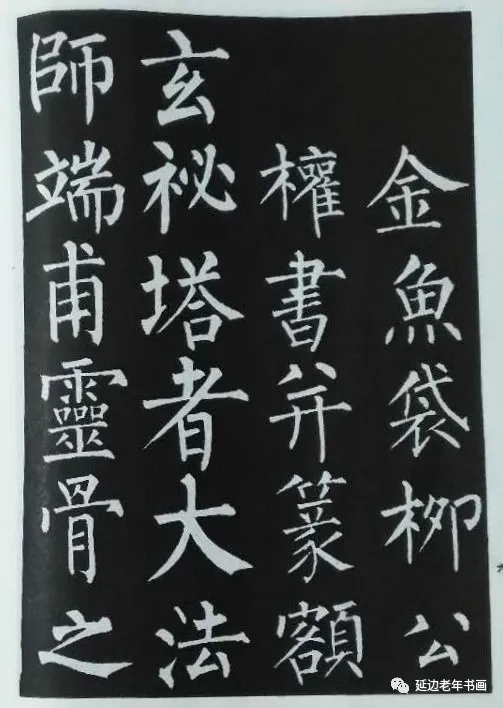 金魚袋柳公
權書并篆額
玄祕塔者大法
師端甫靈骨之
延边老年书画